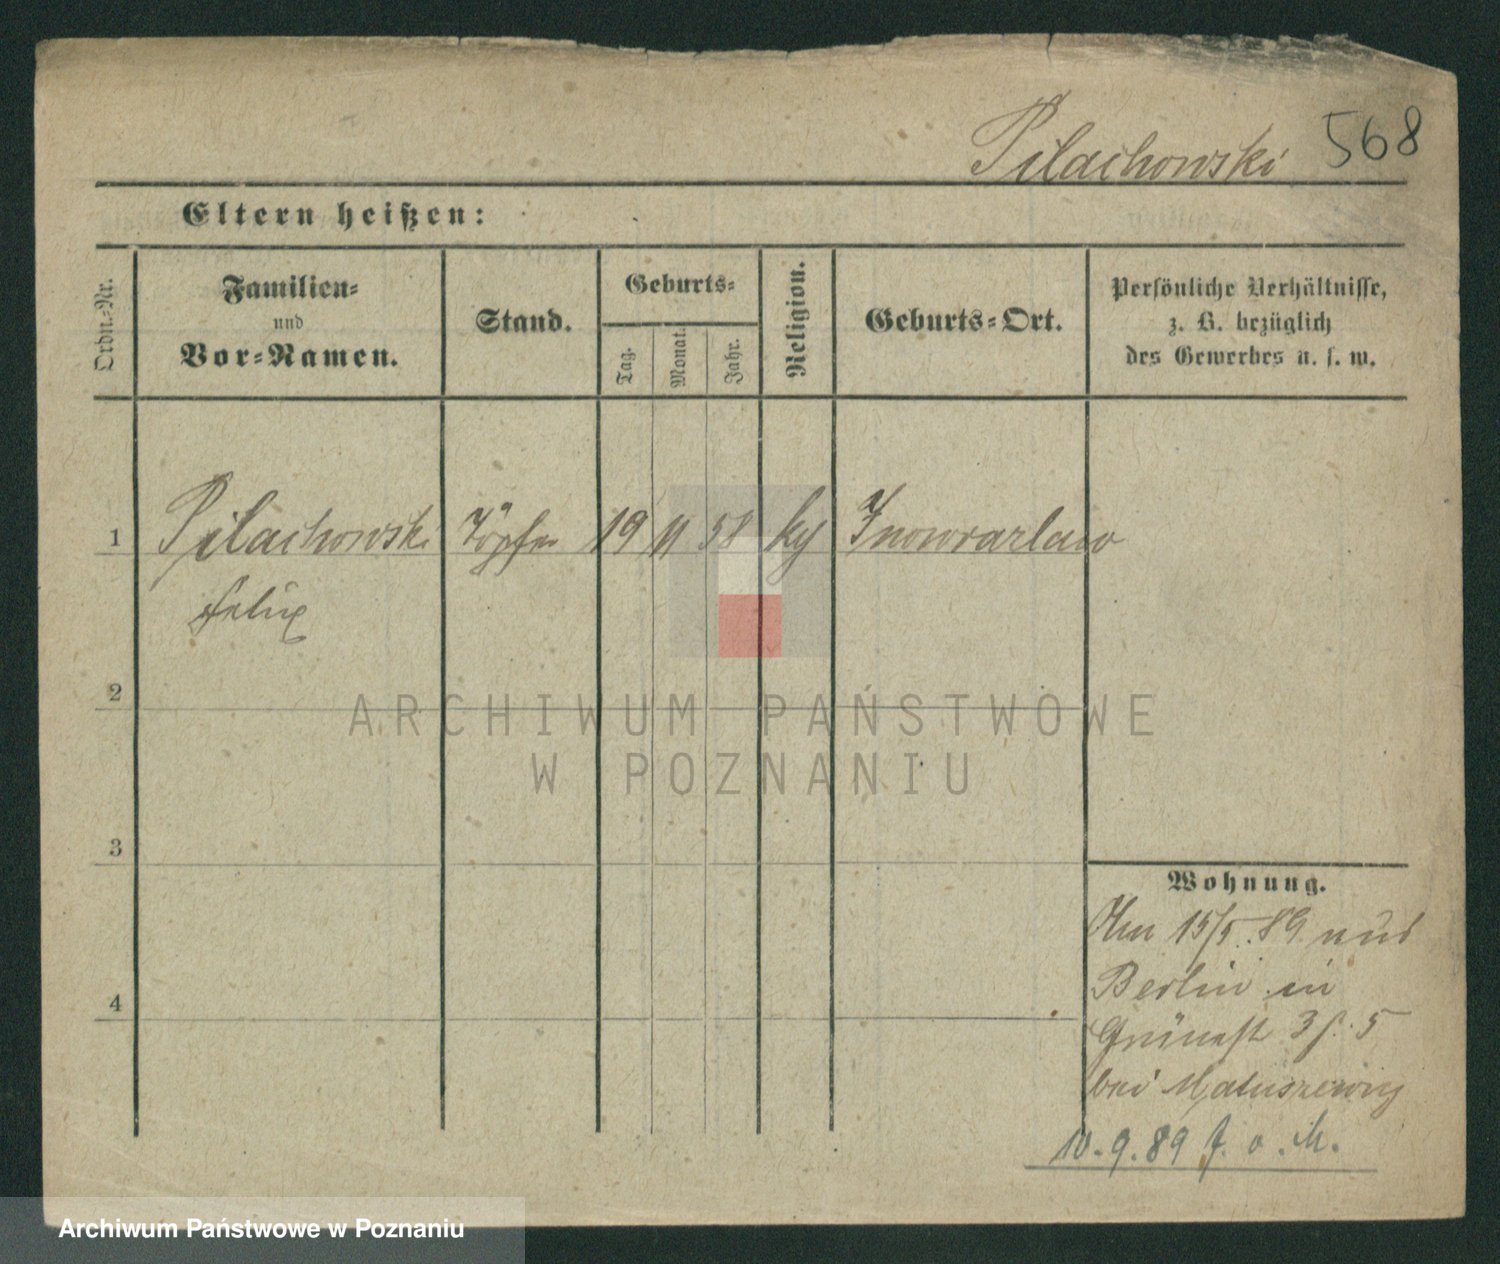 Pilachowski 568
Eltern heißen:
Ordn.-Nr.
Familien-
und
Vor-Namen.
Stand.
Geburts-
Tag.
Monat.
Jahr.
Religion.
Geburts-Ort.
Persönliche Verhältnisse,
z. B. bezüglich
des Gewerbes u. s. w.
1 Pilachowski Töpfer 19 11 58 Inowrazlaw
Felix
2
ARCHIWUM PAŃSTWOWE
W POZNANIU
3
4
Wohnung.
15/5. 89. aus
Berlin in
3 5
bei Matuszewicz
10. 9. 89 f. o. M.
Archiwum Państwowe w Poznaniu